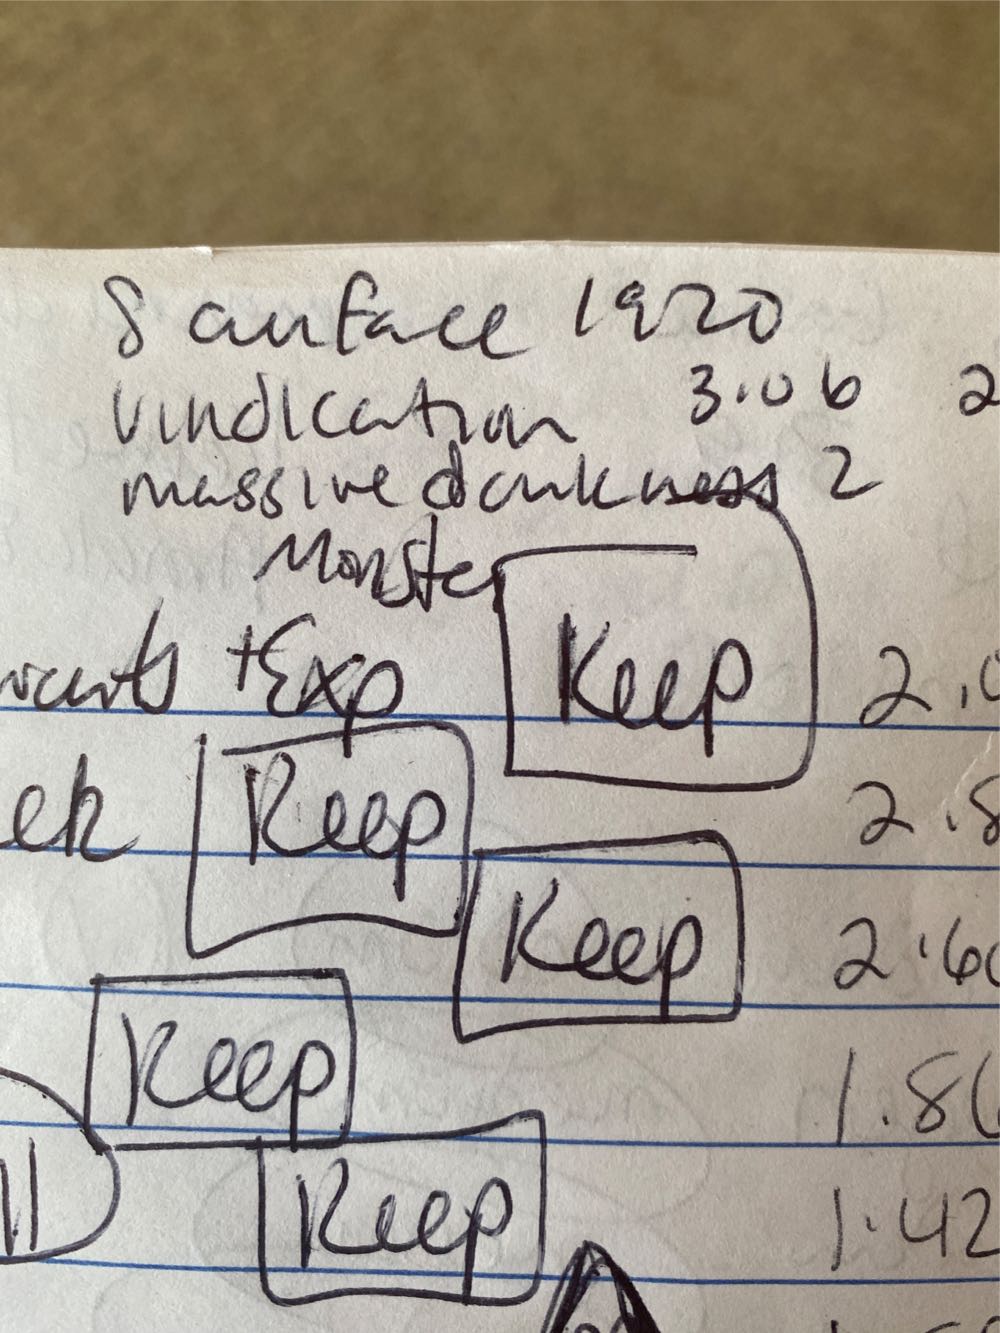 Scarface 1920
Vindication 3.06 2
massive darkness 2
Monster
+Exp Keep 2.0
ek Keep 2.8
Keep 2.60
Keep 1.86
ll Keep 1.42